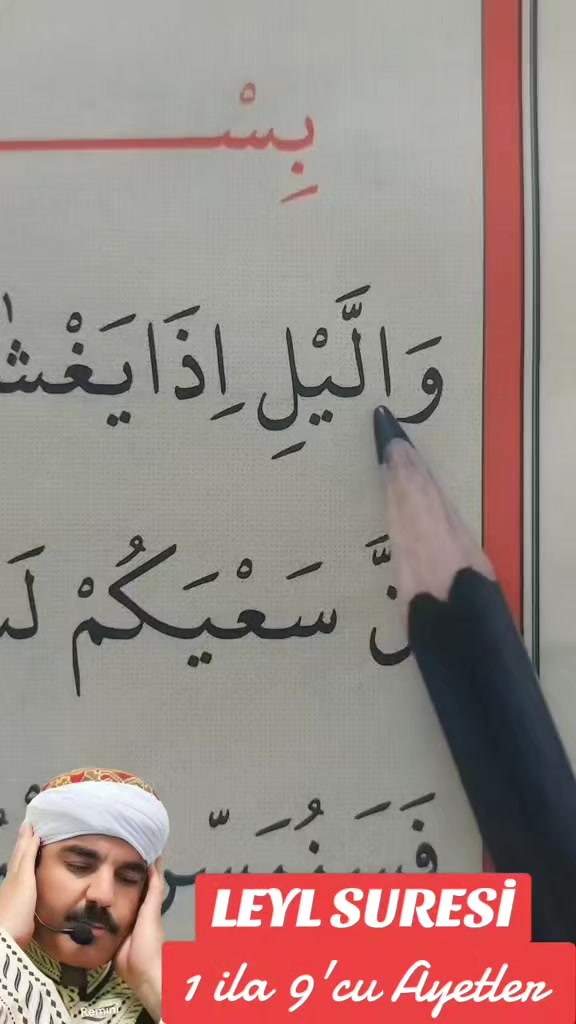 بِسْـــــ
وَالَّيْلِ اِذَا يَغْشٰ
نَّ سَعْيَكُمْ لَ
فَسَنُيَسِّ
LEYL SURESİ
1 ila 9'cu Ayetler
Remini